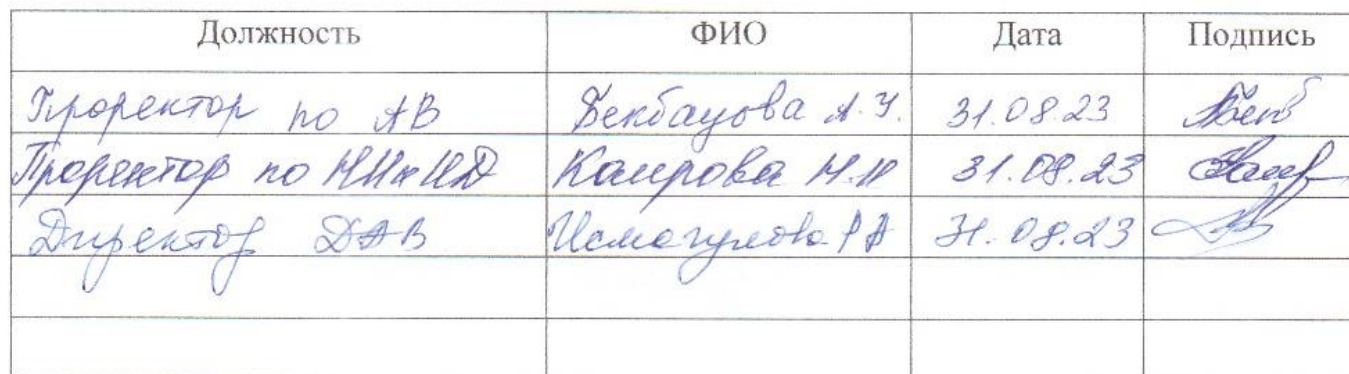 Должность ФИО Дата Подпись
Проректор по АВ Бекбауова А.У. 31.08.23
Проректор по Каирова 31.08.23
Директор ДАВ Исмагулова 31.08.23